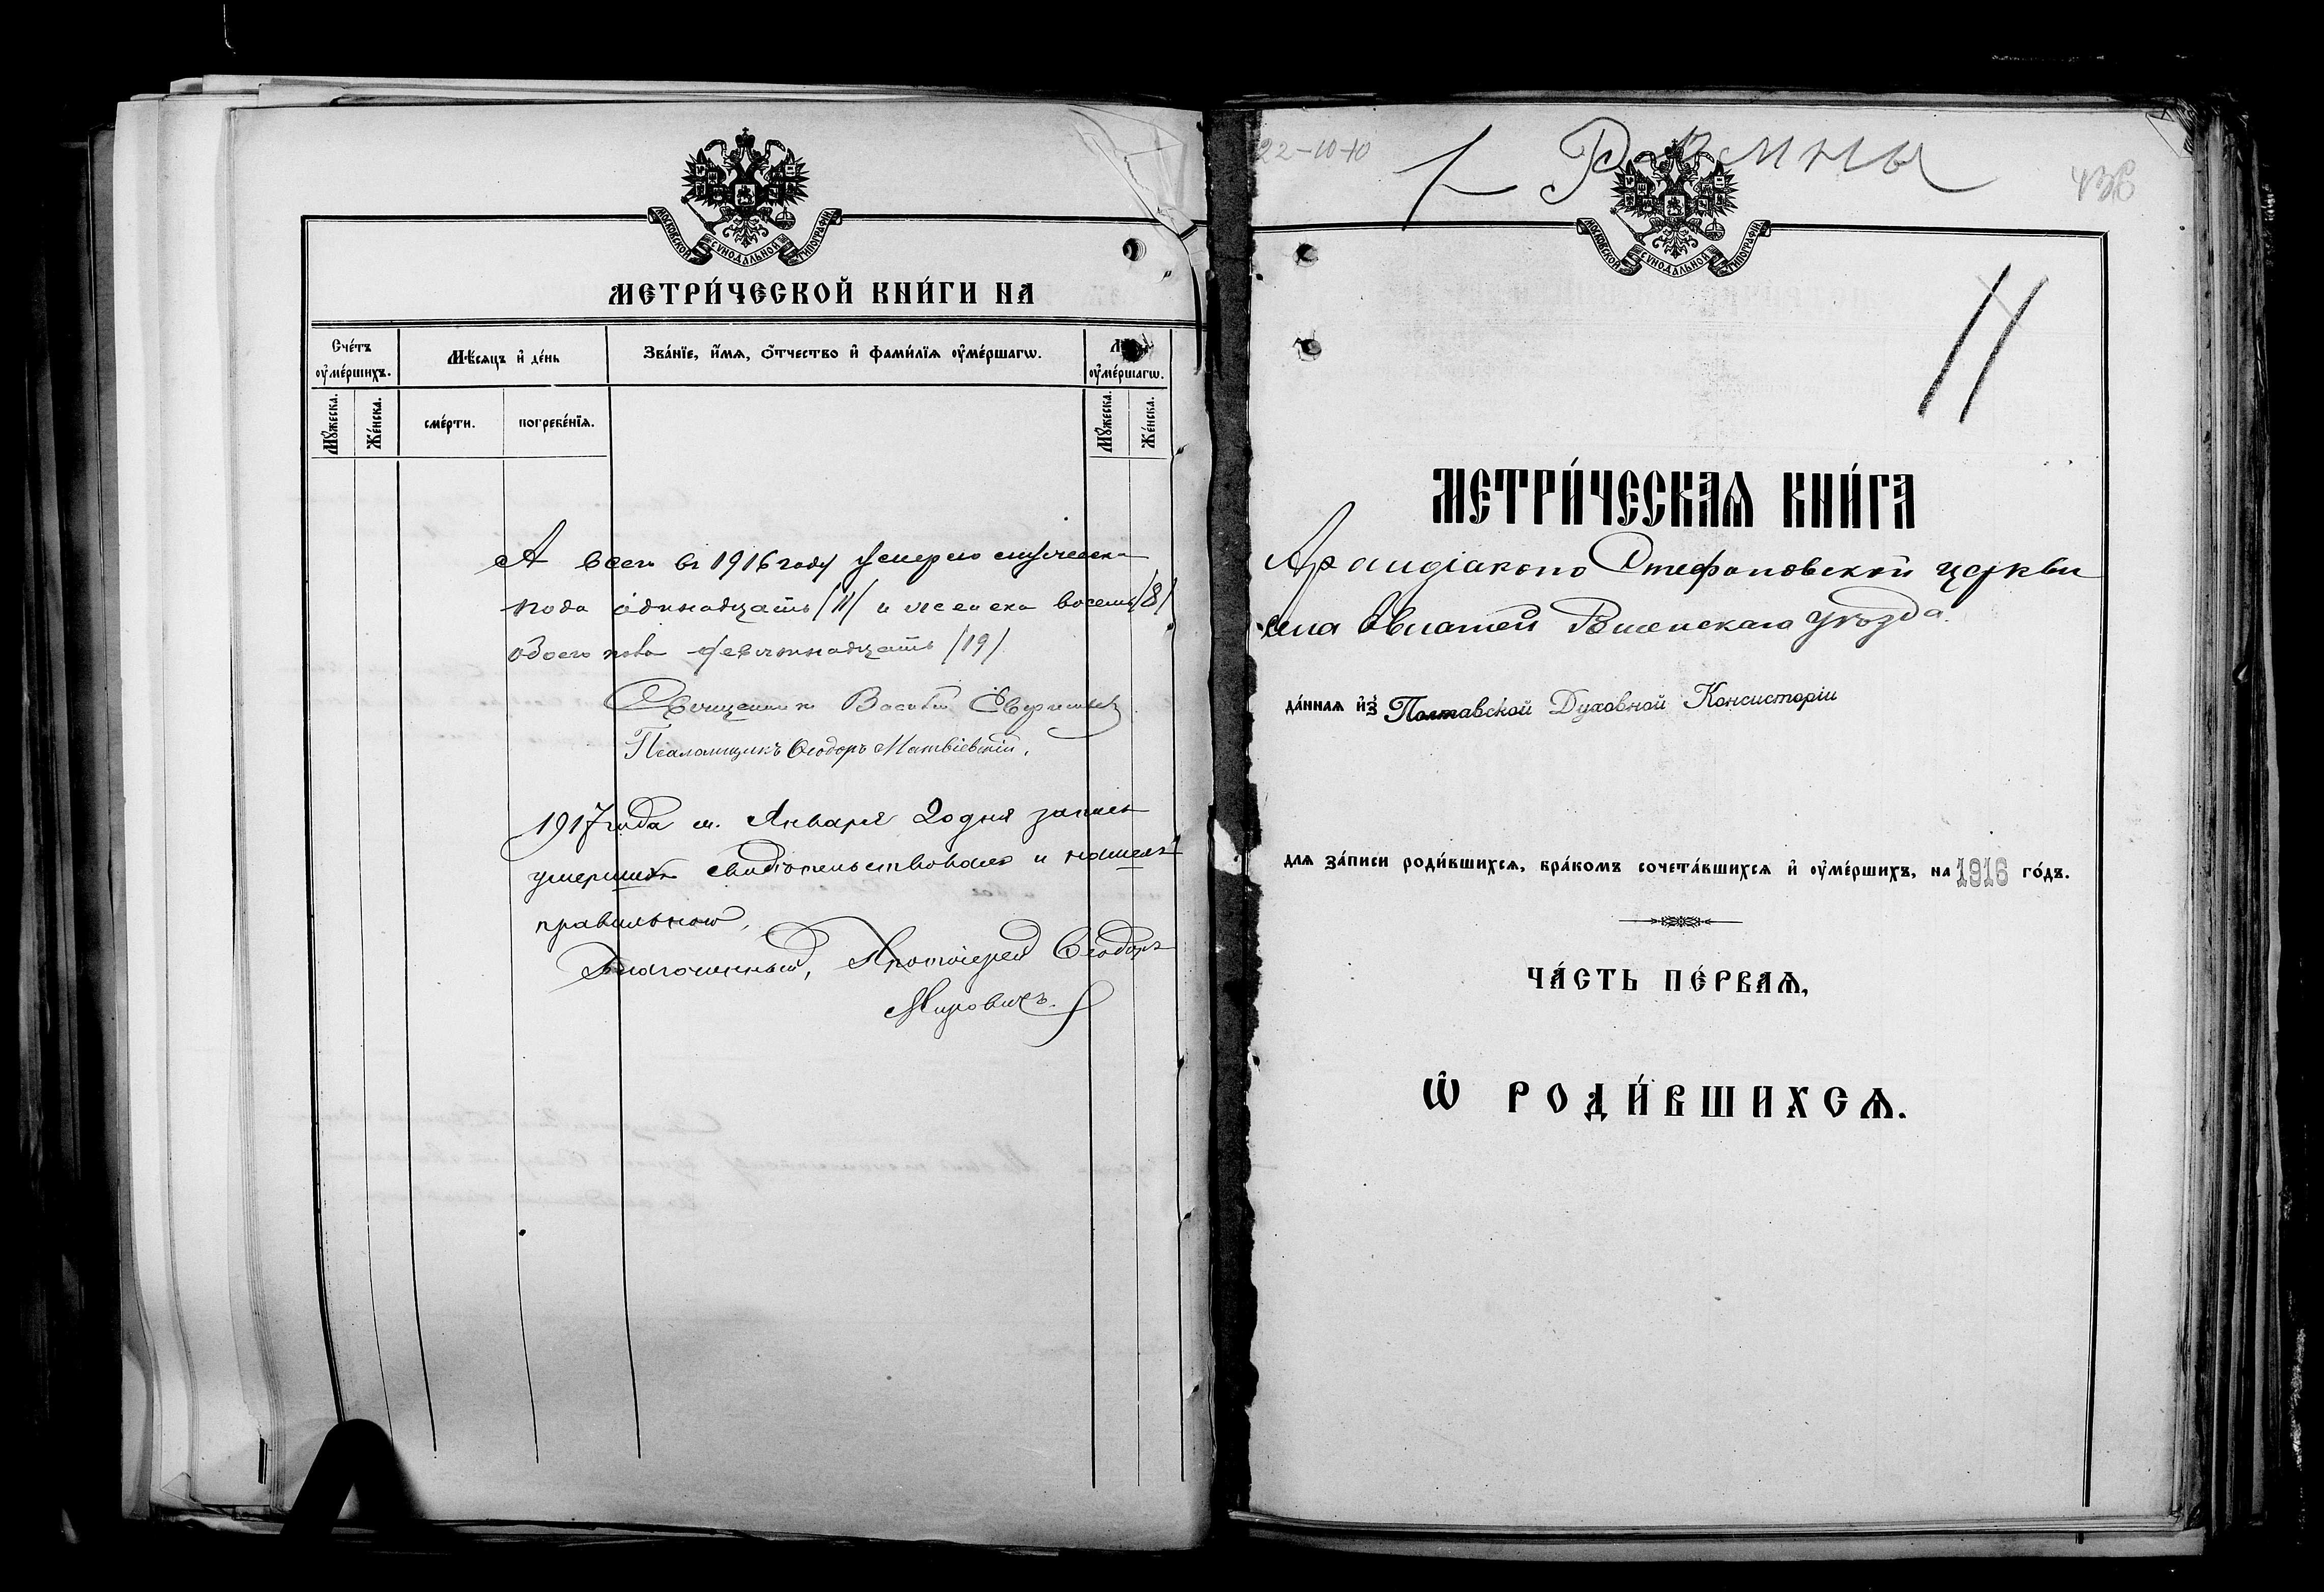 МОСКОВСКОЙ СѴНОДАЛЬНОЙ ТИПОГРАФІИ
МЕТРИ́ЧЕСКОЙ КНИ́ГИ НА
Сче́тъ ᲂу҆ме́ршихъ.
Мѣ́сѧцъ и҆ де́нь
Зва́нїе, и҆́мѧ, ѻ҆́тчество и҆ фами́лїѧ ᲂу҆ме́ршагѡ.
ᲂу҆ме́ршагѡ.
Мꙋ́жеска.
Же́нска.
сме́рти.
погребе́нїѧ.
Мꙋ́жеска.
Же́нска.
А всего въ 1916 году умерло мужеска
пола одинадцать /11/ и женска восемь /8/
обоего пола девятнадцать /19/
Священникъ Василій
Псаломщикъ Ѳеодоръ Матвіевскій.
1917 года м. Января 20 дня запись
умершихъ свидѣтельствовалъ и нашелъ
правильною,
Благочинный, Протоіерей Ѳеодоръ
Мировичъ.
22-10-10
Ромны
МОСКОВСКОЙ СѴНОДАЛЬНОЙ ТИПОГРАФІИ
11
МЕТРИ́ЧЕСКАѦ КНИ́ГА
Архидіаконо Стефановской церкви
села Роменскаго уѣзда.
да́ннаѧ и҆з̾ Полтавской Духовной Консисторіи
длѧ за́писи роди́вшихсѧ, бра́комъ сочета́вшихсѧ и҆ ᲂу҆ме́ршихъ, на 1916 го́дъ.
ЧА́СТЬ ПЕ́РВАѦ,
Ѡ҆ РОДИ́ВШИХСѦ.